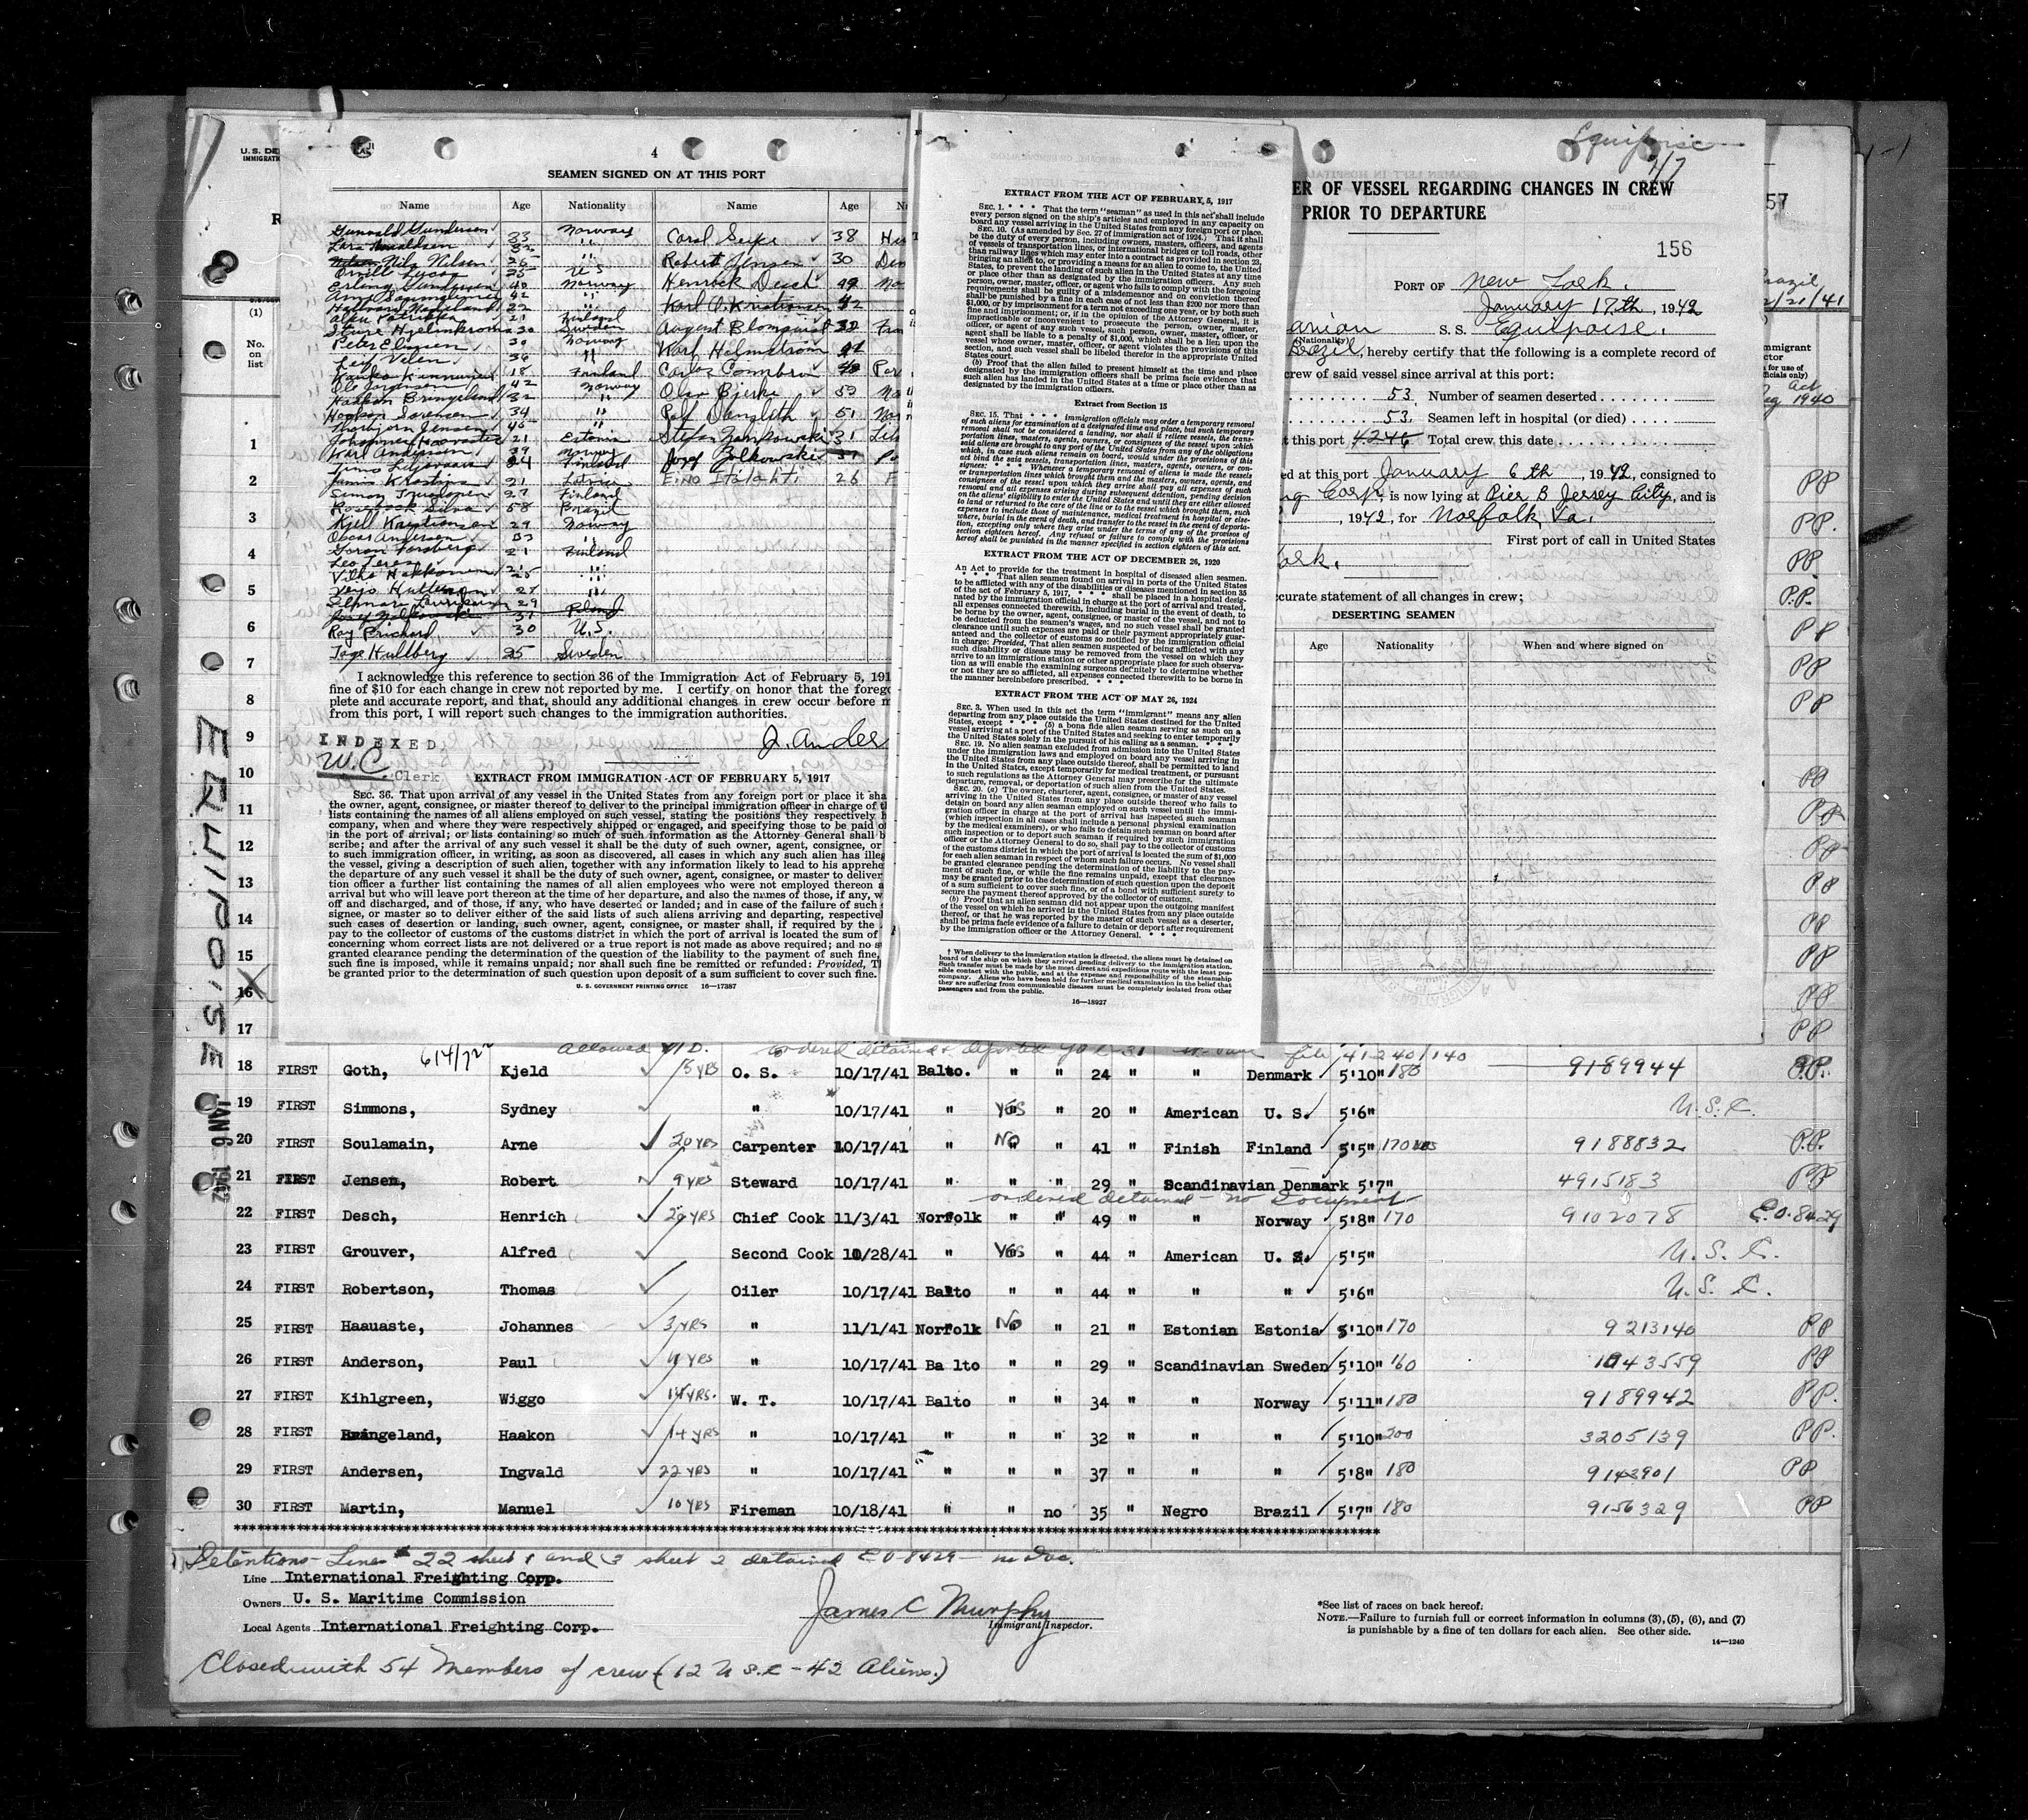 U.S. DE
IMMIGRATI
(1)
No.
on
list
1
2
3
4
5
6
7
8
9
10
11
12
13
14
15
16
17
EQUIPOISE
JAN 6 1942
4
SEAMEN SIGNED ON AT THIS PORT
Name Age Nationality Name Age N
Gunvald Gunderson 33 Norway
Nils Nilsen 26 "
Orville 25 U S
Erling 40 Norway
Peter 30 Norway
Haakon Bringeland 32 "
Haakon Sorensen 34 "
Thorbjorn Jensen 45 "
Johannes 21 Estonia
Karl Anderson 39 Norway
21 Latvia
Simon 27 Finland
Silva 58 Brazil
Kjell Kristiansen 29 Norway
Oscar Andersen 33 "
Goran Forsberg 21 Finland
Roy Prichard 30 U.S.
Tage Hullberg 25 Sweden
Carol 38
Robert Jensen 30 Den
Henrock Desch 49 No
Karl O. Kristiansen 42
August Blomquist
Karl Holmstrom
Carlos
Olav Bjerke 59 No
51
Stefan 31
Josef Zolkowski 37 Po
Eino 26 F
I acknowledge this reference to section 36 of the Immigration Act of February 5, 191
fine of $10 for each change in crew not reported by me. I certify on honor that the forego
plete and accurate report, and that, should any additional changes in crew occur before m
from this port, I will report such changes to the immigration authorities.
INDEXED
W.C. Clerk
J. Ander
EXTRACT FROM IMMIGRATION ACT OF FEBRUARY 5, 1917
SEC. 36. That upon arrival of any vessel in the United States from any foreign port or place it sha
the owner, agent, consignee, or master thereof to deliver to the principal immigration officer in charge of t
lists containing the names of all aliens employed on such vessel, stating the positions they respectively h
company, when and where they were respectively shipped or engaged, and specifying those to be paid o
in the port of arrival; or lists containing so much of such information as the Attorney General shall b
scribe; and after the arrival of any such vessel it shall be the duty of such owner, agent, consignee, or
to such immigration officer, in writing, as soon as discovered, all cases in which any such alien has illeg
the vessel, giving a description of such alien, together with any information likely to lead to his apprehe
the departure of any such vessel it shall be the duty of such owner, agent, consignee, or master to deliver
tion officer a further list containing the names of all alien employees who were not employed thereon a
arrival but who will leave port thereon at the time of her departure, and also the names of those, if any, w
off and discharged, and of those, if any, who have deserted or landed; and in case of the failure of such
signee, or master so to deliver either of the said lists of such aliens arriving and departing, respectivel
such cases of desertion or landing, such owner, agent, consignee, or master shall, if required by the
pay to the collector of customs of the customs district in which the port of arrival is located the sum of
concerning whom correct lists are not delivered or a true report is not made as above required; and no s
granted clearance pending the determination of the question of the liability to the payment of such fine,
such fine is imposed, while it remains unpaid; nor shall such fine be remitted or refunded: Provided, T
be granted prior to the determination of such question upon deposit of a sum sufficient to cover such fine.
U. S. GOVERNMENT PRINTING OFFICE 16—17387
EXTRACT FROM THE ACT OF FEBRUARY 5, 1917
SEC. 1. * * * That the term "seaman" as used in this act shall include
every person signed on the ship's articles and employed in any capacity on
board any vessel arriving in the United States from any foreign port or place.
SEC. 10. (As amended by Sec. 27 of immigration act of 1924.) That it shall
be the duty of every person, including owners, masters, officers, and agents
of vessels of transportation lines, or international bridges or toll roads, other
than railway lines which may enter into a contract as provided in section 23,
bringing an alien to, or providing a means for an alien to come to, the United
States, to prevent the landing of such alien in the United States at any time
or place other than as designated by the immigration officers. Any such
person, owner, master, officer, or agent who fails to comply with the foregoing
requirements shall be guilty of a misdemeanor and on conviction thereof
shall be punished by a fine in each case of not less than $200 nor more than
$1,000, or by imprisonment for a term not exceeding one year, or by both such
fine and imprisonment; or, if in the opinion of the Attorney General, it is
impracticable or inconvenient to prosecute the person, owner, master,
officer, or agent of any such vessel, such person, owner, master, officer, or
agent shall be liable to a penalty of $1,000, which shall be a lien upon the
vessel whose owner, master, officer, or agent violates the provisions of this
section, and such vessel shall be libeled therefor in the appropriate United
States court.
(b) Proof that the alien failed to present himself at the time and place
designated by the immigration officers shall be prima facie evidence that
such alien has landed in the United States at a time or place other than as
designated by the immigration officers.
Extract from Section 15
SEC. 15. That * * * immigration officials may order a temporary removal
of such aliens for examination at a designated time and place, but such temporary
removal shall not be considered a landing, nor shall it relieve vessels, the trans-
portation lines, masters, agents, owners, or consignees of the vessel upon which
said aliens are brought to any port of the United States from any of the obligations
which, in case such aliens remain on board, would under the provisions of this
act bind the said vessels, transportation lines, masters, agents, owners, or con-
signees: * * * Whenever a temporary removal of aliens is made the vessels
or transportation lines which brought them and the masters, owners, agents, and
consignees of the vessel upon which they arrive shall pay all expenses of such
removal and all expenses arising during subsequent detention, pending decision
on the aliens' eligibility to enter the United States and until they are either allowed
to land or returned to the care of the line or to the vessel which brought them, such
expenses to include those of maintenance, medical treatment in hospital or else-
where, burial in the event of death, and transfer to the vessel in the event of deporta-
tion, excepting only where they arise under the terms of any of the provisos of
section eighteen hereof. Any refusal or failure to comply with the provisions
hereof shall be punished in the manner specified in section eighteen of this act.
EXTRACT FROM THE ACT OF DECEMBER 26, 1920
An Act to provide for the treatment in hospital of diseased alien seamen.
* * * That alien seamen found on arrival in ports of the United States
to be afflicted with any of the disabilities or diseases mentioned in section 35
of the act of February 5, 1917, * * * shall be placed in a hospital desig-
nated by the immigration official in charge at the port of arrival and treated,
all expenses connected therewith, including burial in the event of death, to
be borne by the owner, agent, consignee, or master of the vessel, and not to
be deducted from the seamen's wages, and no such vessel shall be granted
clearance until such expenses are paid or their payment appropriately guar-
anteed and the collector of customs so notified by the immigration official
in charge: Provided, That alien seamen suspected of being afflicted with any
such disability or disease may be removed from the vessel on which they
arrive to an immigration station or other appropriate place for such observa-
tion as will enable the examining surgeons definitely to determine whether
or not they are so afflicted, all expenses connected therewith to be borne in
the manner hereinbefore prescribed. * * *
EXTRACT FROM THE ACT OF MAY 26, 1924
SEC. 3. When used in this act the term "immigrant" means any alien
departing from any place outside the United States destined for the United
States, except * * * (5) a bona fide alien seaman serving as such on a
vessel arriving at a port of the United States and seeking to enter temporarily
the United States solely in the pursuit of his calling as a seaman. * * *
SEC. 19. No alien seaman excluded from admission into the United States
under the immigration laws and employed on board any vessel arriving in
the United States from any place outside thereof, shall be permitted to land
in the United States, except temporarily for medical treatment, or pursuant
to such regulations as the Attorney General may prescribe for the ultimate
departure, removal, or deportation of such alien from the United States.
SEC. 20. (a) The owner, charterer, agent, consignee, or master of any vessel
arriving in the United States from any place outside thereof who fails to
detain on board any alien seaman employed on such vessel until the immi-
gration officer in charge at the port of arrival has inspected such seaman
(which inspection in all cases shall include a personal physical examination
by the medical examiners), or who fails to detain such seaman on board after
such inspection or to deport such seaman if required by such immigration
officer or the Attorney General to do so, shall pay to the collector of customs
of the customs district in which the port of arrival is located the sum of $1,000
for each alien seaman in respect of whom such failure occurs. No vessel shall
be granted clearance pending the determination of the liability to the pay-
ment of such fine, or while the fine remains unpaid, except that clearance
may be granted prior to the determination of such question upon the deposit
of a sum sufficient to cover such fine, or of a bond with sufficient surety to
secure the payment thereof approved by the collector of customs.
(b) Proof that an alien seaman did not appear upon the outgoing manifest
of the vessel on which he arrived in the United States from any place outside
thereof, or that he was reported by the master of such vessel as a deserter,
shall be prima facie evidence of a failure to detain or deport after requirement
by the immigration officer or the Attorney General. * * *
† When delivery to the immigration station is directed, the aliens must be detained on
board of the ship on which they arrived pending delivery to the immigration station.
Such transfer must be made by the most direct and expeditious route with the least pos-
sible contact with the public, and at the expense and responsibility of the steamship
company. Aliens who have been held for further medical examination in the belief that
they are suffering from communicable diseases must be completely isolated from other
passengers and from the public.
16—18927
Equipoise
1/7
ER OF VESSEL REGARDING CHANGES IN CREW
PRIOR TO DEPARTURE
156
57
PORT OF New York.
January 17th, 1942
anian S. S. Equipoise.
(Nationality)
Brazil, hereby certify that the following is a complete record of
crew of said vessel since arrival at this port:
53 Number of seamen deserted
53 Seamen left in hospital (or died)
t this port 4246 Total crew, this date
ed at this port January 6th, 1942, consigned to
ng Corp., is now lying at Pier B Jersey City, and is
, 1942, for Norfolk, Va.
First port of call in United States
York.
ccurate statement of all changes in crew;
DESERTING SEAMEN
Age Nationality When and where signed on
razil
2/21/41
mmigrant
ctor
for use of
ficials only)
Act
1940
PP
PP.
PP
P.P.
PP
PP
PP
PP
PP
PP
PP
PP
PP
PP
PP
614/722 allowed ordered detained & deported file 41-240/140
18 FIRST Goth, Kjeld 5 yrs O. S. 10/17/41 Balto. " " 24 " " Denmark 5'10" 180 9189944 P.P.
19 FIRST Simmons, Sydney " 10/17/41 " Yes " 20 " American U. S. 5'6" U.S.C.
20 FIRST Soulamain, Arne 20 yrs Carpenter 10/17/41 " No " 41 " Finish Finland 5'5" 170 lbs 9188832 P.P.
21 FIRST Jensen, Robert 9 yrs Steward 10/17/41 " " " 29 " Scandinavian Denmark 5'7" 4915183 PP
ordered detained - no Document
22 FIRST Desch, Henrich 20 yrs Chief Cook 11/3/41 Norfolk " " 49 " Norway 5'8" 170 9102078 E.O. 8429
23 FIRST Grouver, Alfred Second Cook 10/28/41 " Yes " 44 " American U. S. 5'5" U.S.C.
24 FIRST Robertson, Thomas Oiler 10/17/41 Balto " " 44 " " " 5'6" U.S.C.
25 FIRST Haauaste, Johannes 3 yrs " 11/1/41 Norfolk No " 21 " Estonian Estonia 5'10" 170 9213140 PP
26 FIRST Anderson, Paul 11 yrs " 10/17/41 Ba lto " " 29 " Scandinavian Sweden 5'10" 160 1043559 PP
27 FIRST Kihlgreen, Wiggo 14 yrs. W. T. 10/17/41 Balto " " 34 " " Norway 5'11" 180 9189942 PP.
28 FIRST Bringeland, Haakon 14 yrs " 10/17/41 " " " 32 " " " 5'10" 200 3205139 PP.
29 FIRST Andersen, Ingvald 22 yrs " 10/17/41 " " " 37 " " " 5'8" 180 9143901 PP
30 FIRST Martin, Manuel 10 yrs Fireman 10/18/41 " " no 35 " Negro Brazil 5'7" 180 9156329 PP
Detentions - Lines # 22 sheet 1 and 3 sheet 2 detained EO-8429 - no Doc.
Line International Freighting Corp.
Owners U. S. Maritime Commission
Local Agents International Freighting Corp.
James C Murphy
Immigrant Inspector.
*See list of races on back hereof.
NOTE.—Failure to furnish full or correct information in columns (3), (5), (6), and (7)
is punishable by a fine of ten dollars for each alien. See other side.
14—1240
Closed with 54 Members of crew (12 U.S.C - 42 Aliens.)